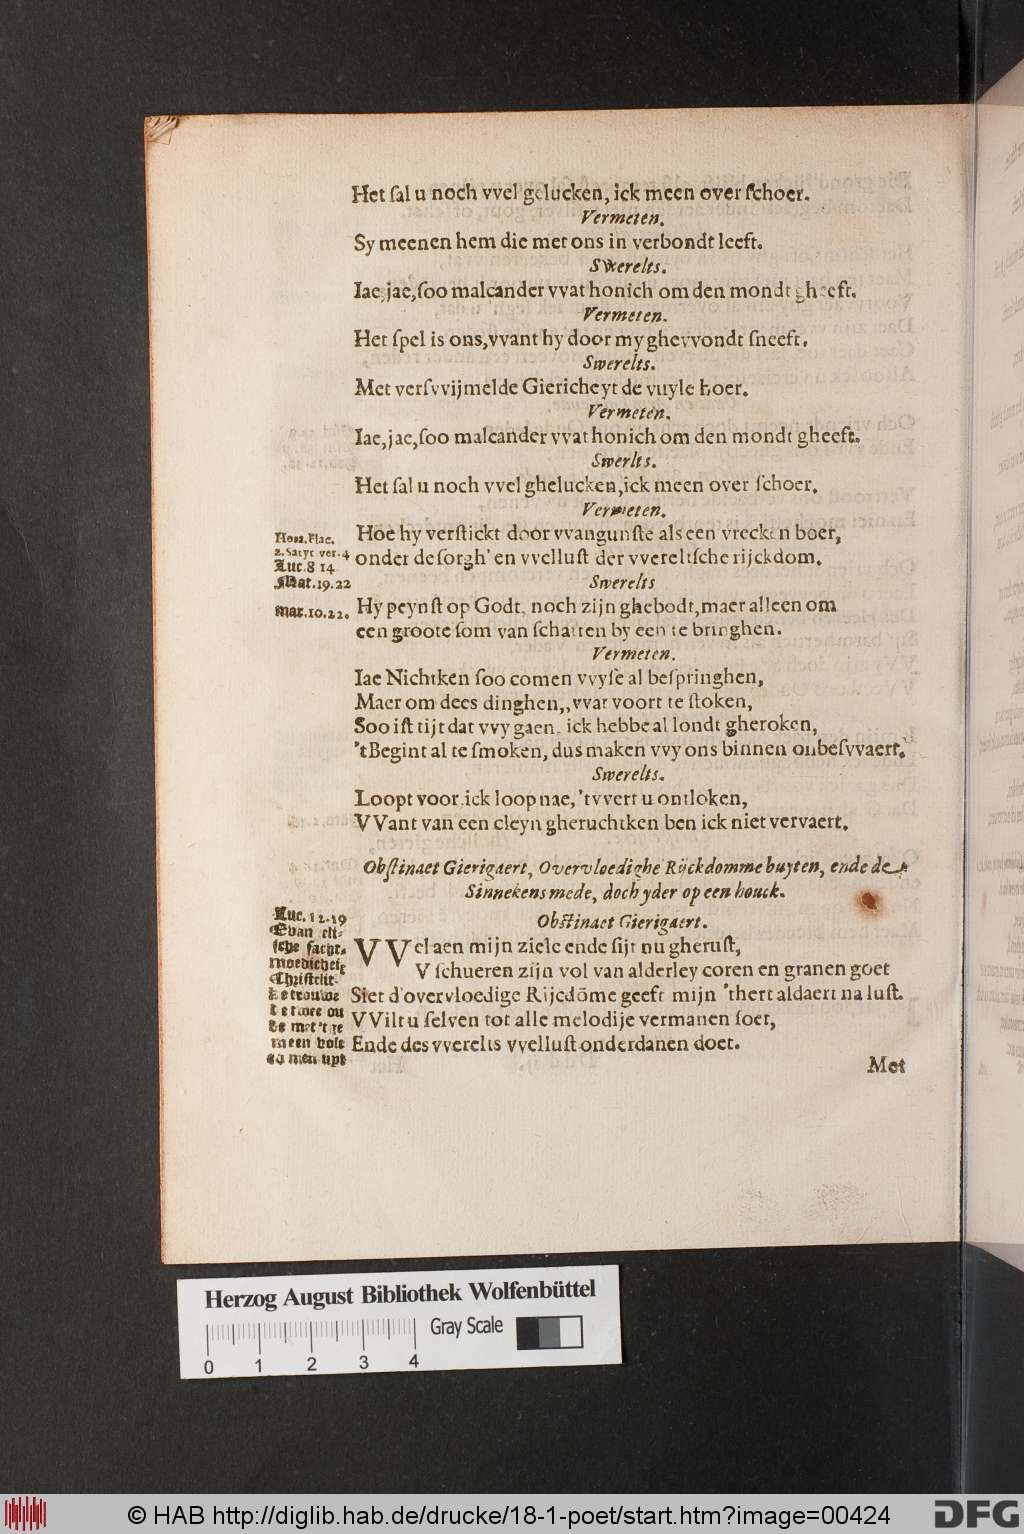 Het ſal u noch vvel gelucken, ick meen over ſchoer.
Vermeten.
Sy meenen hem die met ons in verbondt leeft.
Swerelts.
Iae, jae, ſoo malcander vvat honich om den mondt gheeft.
Vermeten.
Het ſpel is ons, vvant hy door my ghevvondt ſneeft.
Swerelts.
Met verſvvijmelde Giericheyt de vuyle hoer.
Vermeten.
Iae, jae, ſoo malcander vvat honich om den mondt gheeft.
Swerlts.
Het ſal u noch vvel ghelucken, ick meen over ſchoer.
Vermeten.
Hoe hy verſtickt door vvangunſte als een vrecken boer,
onder de ſorgh' en vvelluſt der vvereltſche rijckdom.
Swerelts
Hy peynſt op Godt, noch zijn ghebodt, maer alleen om
een groote ſom van ſchatten by een te bringhen.
Vermeten.
Iae Nichtken ſoo comen vvyſe al beſpringhen,
Maer om dees dinghen,, vvat voort te ſtoken,
Soo iſt tijt dat vvy gaen, ick hebbe al londt gheroken,
't Begint al te ſmoken, dus maken vvy ons binnen onbeſvvaert.
Swerelts.
Loopt voor, ick loop nae, 't vvert u ontloken,
VVant van een cleyn gheruchtken ben ick niet vervaert.
Hora. Flac.
2. Satyr ver. 4
Luc. 8 14
Mat. 19. 22
mar. 10. 22.
Obſtinaet Gierigaert, Overvloedighe Rijckdomme buyten, ende de
Sinnekens mede, doch yder op een houck.
Obſtinaet Gierigaert.
VVel aen mijn ziele ende ſijt nu gheruſt,
V ſchueren zijn vol van alderley coren en granen goet
Siet d'overvloedige Rijcdōme geeft mijn 'thert aldaert na luſt.
VVilt u ſelven tot alle melodije vermanen ſoet,
Ende des vverelts vvelluſt onderdanen doet.
Luc. 12. 19
Evan eli-
ſche ſacht-
moedicheit
Chriſtelit-
ke trouwe
de met 't ge
meen volc
Met
Herzog August Bibliothek Wolfenbüttel
Gray Scale
0 1 2 3 4
© HAB http://diglib.hab.de/drucke/18-1-poet/start.htm?image=00424
DFG